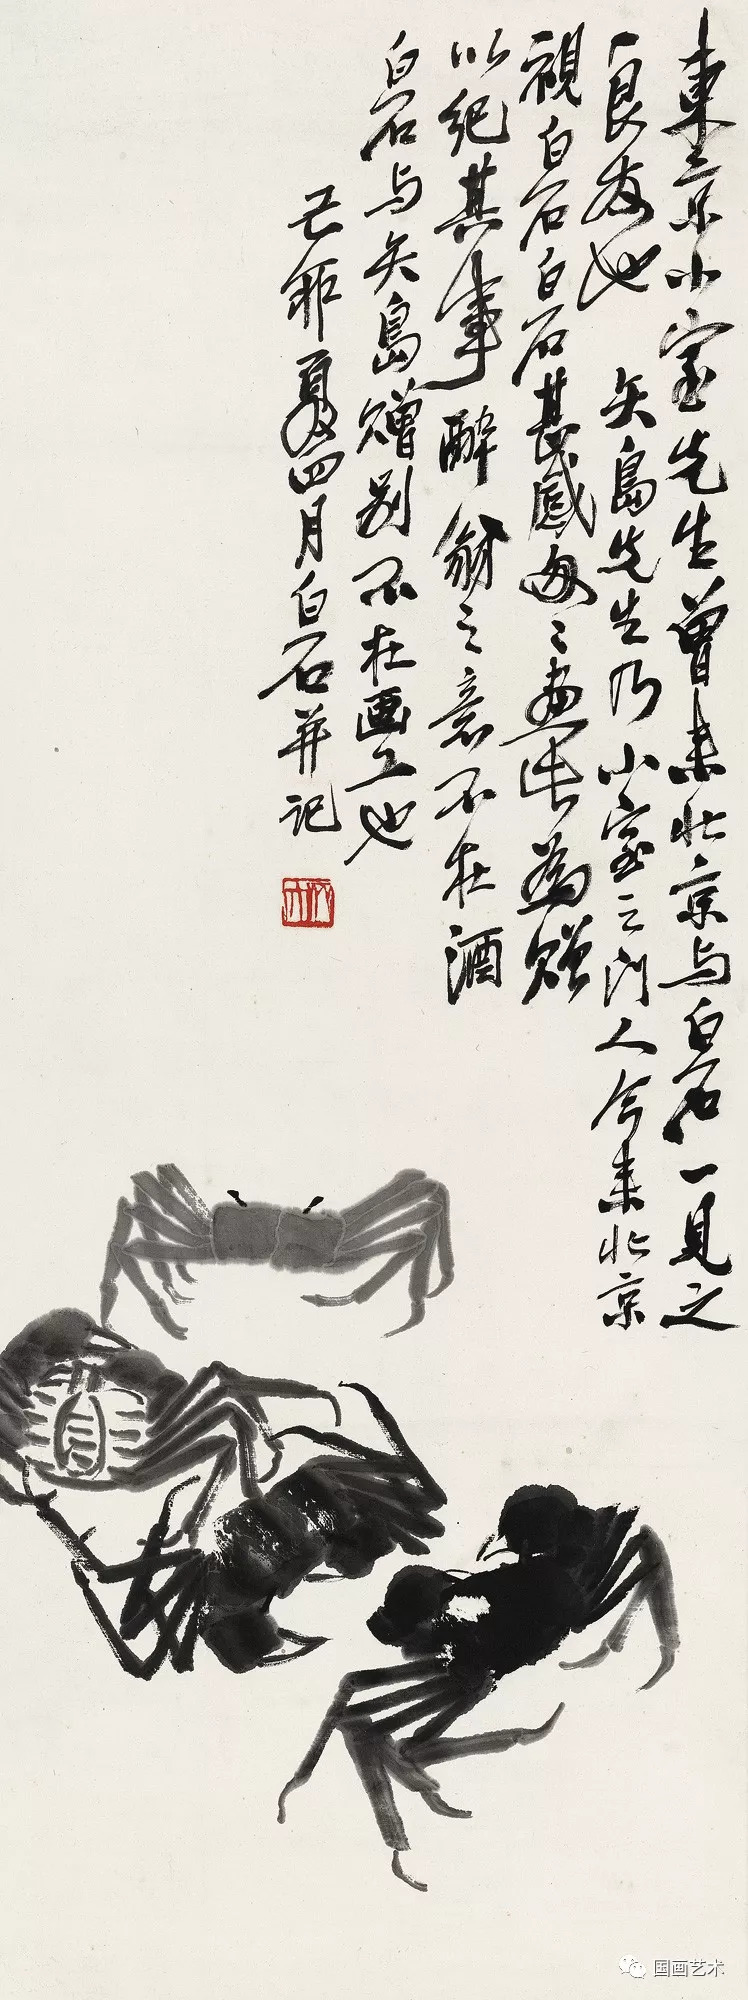 東京小室先生曾来北京与白石一見之
良友也　矢島先生乃小室之门人今来北京
視白石白石甚感每〻画此為贈
以紀其事醉翁之意不在酒
白石与矢島贈别不在画工也
己卯夏四月白石并记
国画艺术